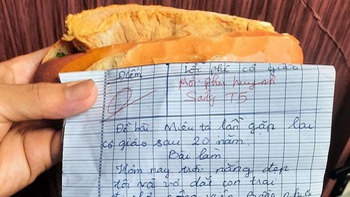 Điểm Lời phê cô giáo
Mời phụ huynh
Sáng T5
Đề bài Miêu tả lần gặp lại
cô giáo sau 20 năm
Bài làm
Hôm nay trời nắng đẹp
tôi và vợ dắt con trai